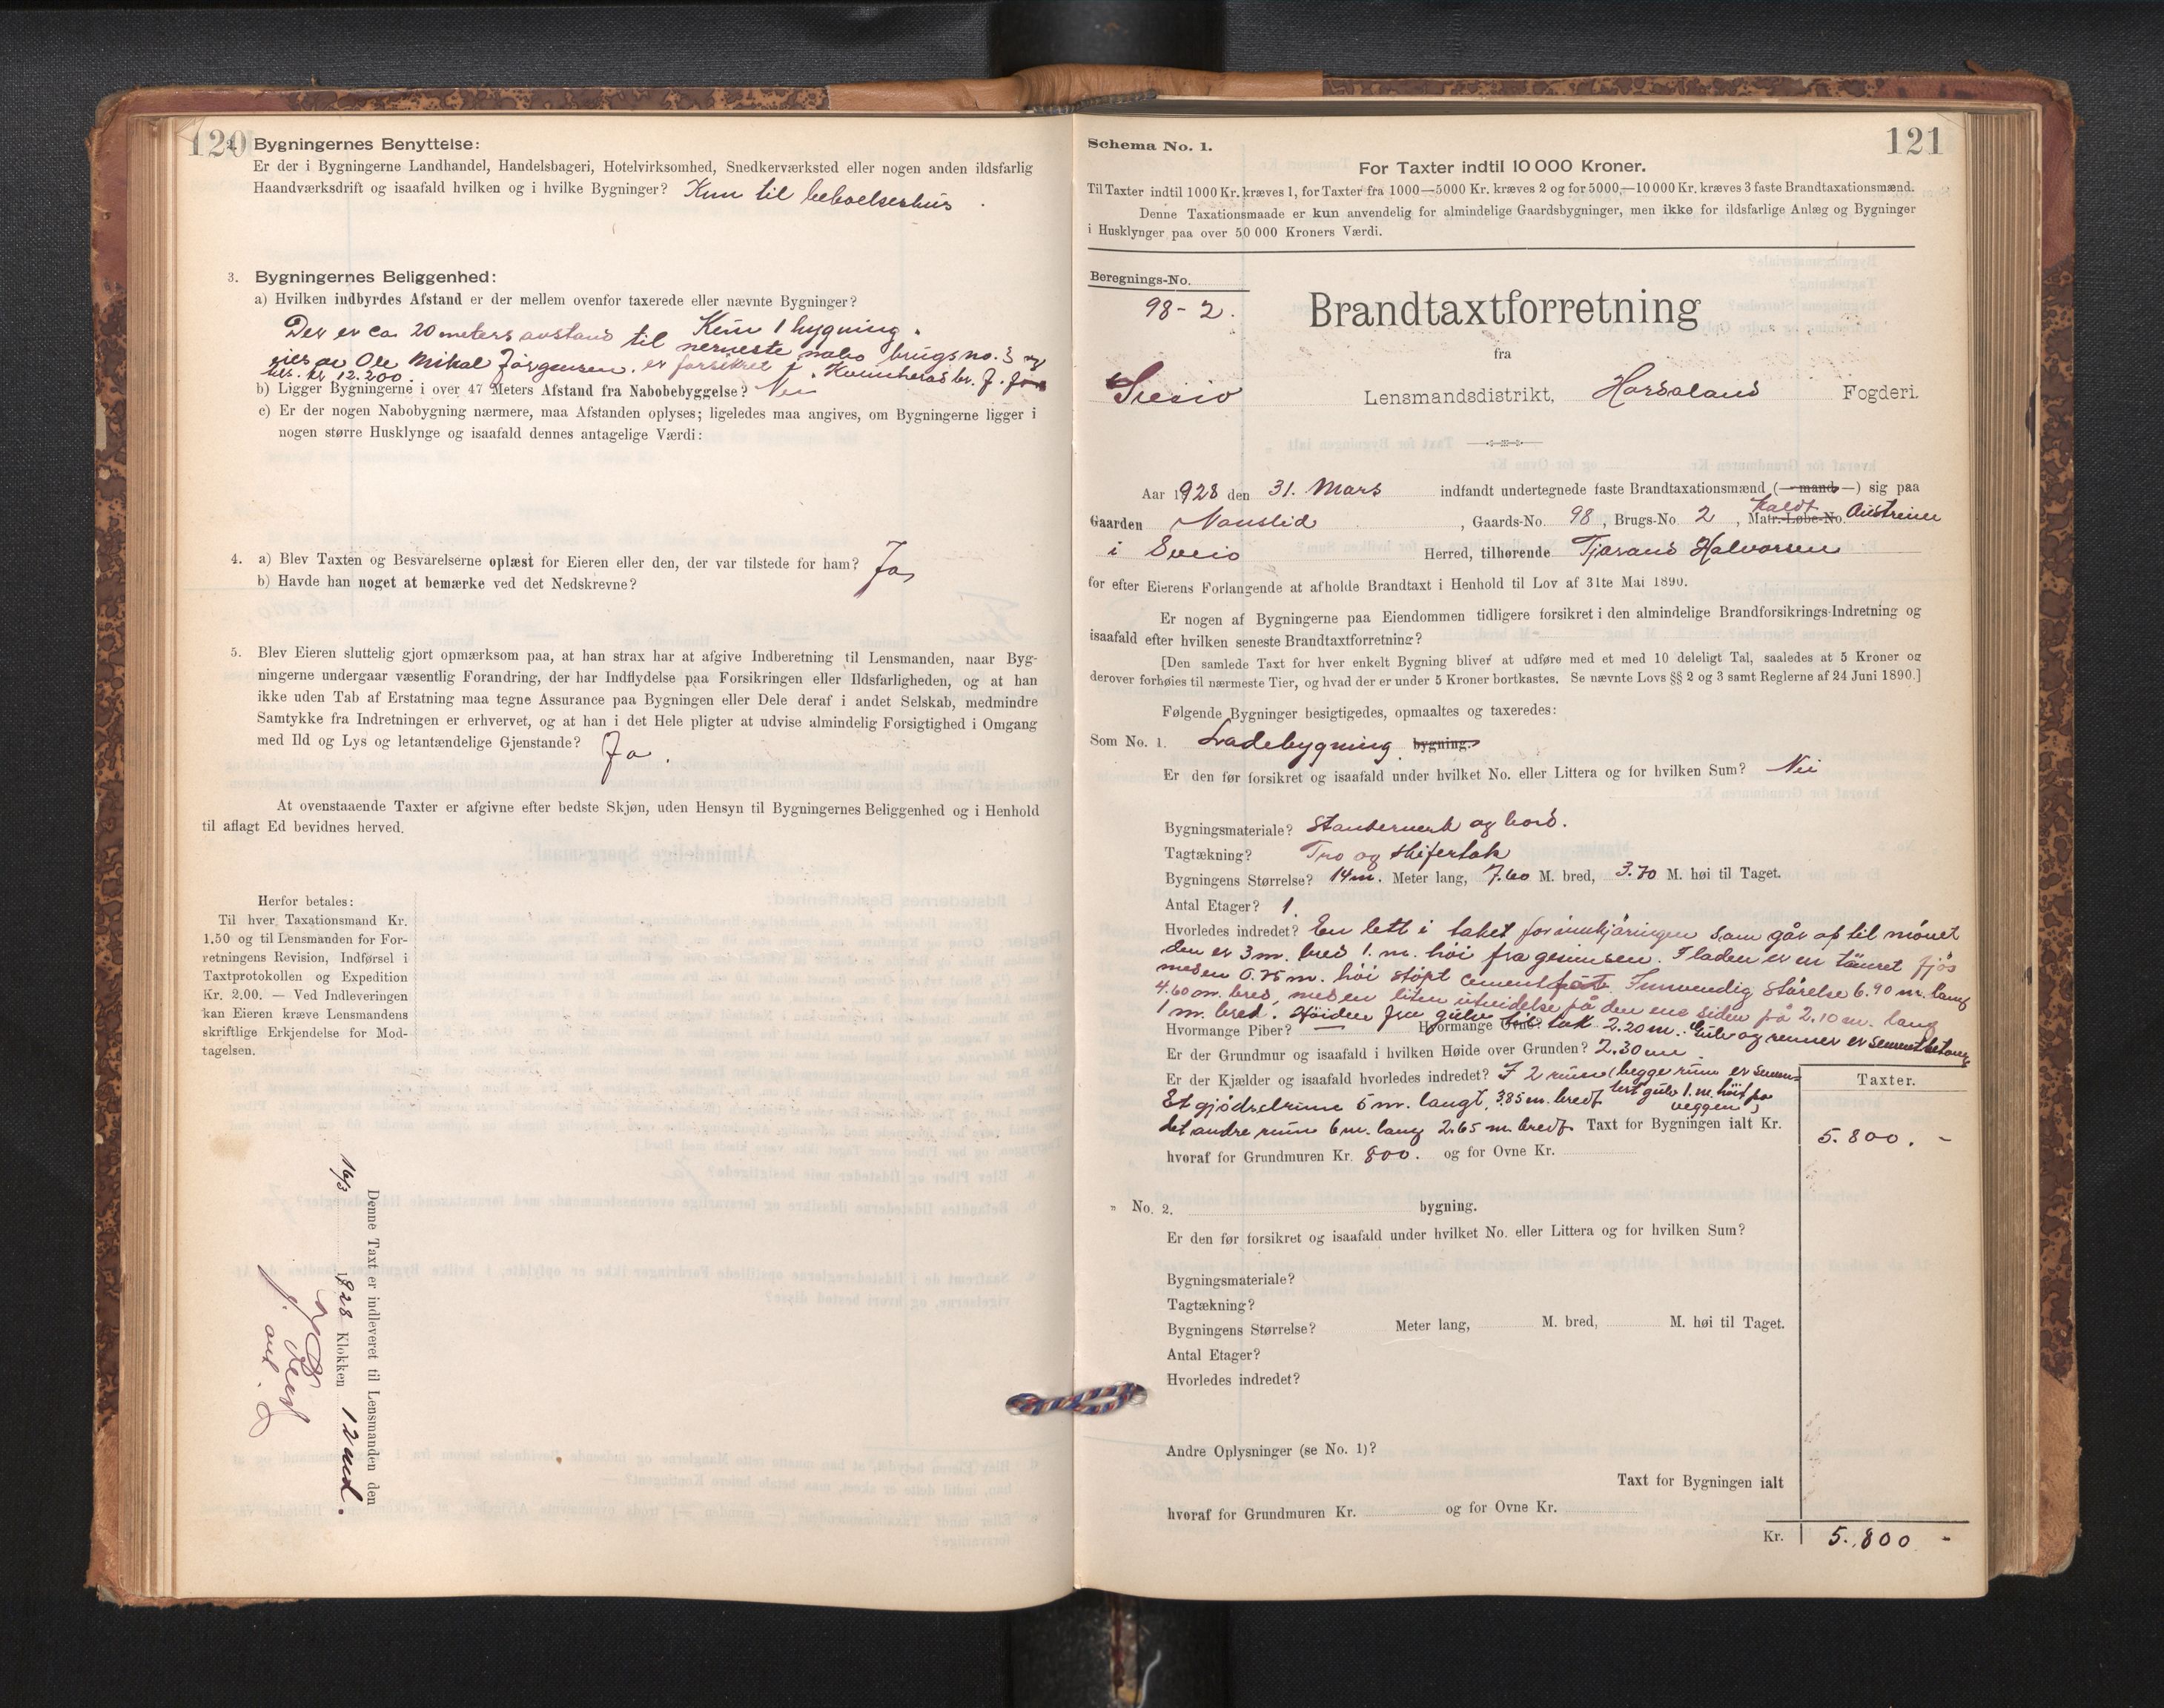 120
2. Bygningernes Benyttelse:
Er der i Bygningerne Landhandel, Handelsbageri, Hotelvirksomhed, Snedkerværksted eller nogen anden ildsfarlig
Haandværksdrift og isaafald hvilken og i hvilke Bygninger? Kun til beboelseshus.
3. Bygningernes Beliggenhed:
a) Hvilken indbyrdes Afstand er der mellem ovenfor taxerede eller nævnte Bygninger?
Kun 1 bygning.
Der er ca 20 meters avstand til nerneste nabo brugsno. 3
eies av Ole Mikal Jørgensen. er forsikret
kr 12.200.
b) Ligger Bygningerne i over 47 Meters Afstand fra Nabobebyggelse? Nei
c) Er der nogen Nabobygning nærmere, maa Afstanden oplyses; ligeledes maa angives, om Bygningerne ligger i
nogen større Husklynge og isaafald dennes antagelige Værdi:
4. a) Blev Taxten og Besvarelserne oplæst for Eieren eller den, der var tilstede for ham? Ja
b) Havde han noget at bemærke ved det Nedskrevne?
5. Blev Eieren sluttelig gjort opmærksom paa, at han strax har at afgive Indberetning til Lensmanden, naar Byg-
ningerne undergaar væsentlig Forandring, der har Indflydelse paa Forsikringen eller Ildsfarligheden, og at han
ikke uden Tab af Erstatning maa tegne Assurance paa Bygningen eller Dele deraf i andet Selskab, medmindre
Samtykke fra Indretningen er erhvervet, og at han i det Hele pligter at udvise almindelig Forsigtighed i Omgang
med Ild og Lys og letantændelige Gjenstande? Ja.
At ovenstaaende Taxter er afgivne efter bedste Skjøn, uden Hensyn til Bygningernes Beliggenhed og i Henhold
til aflagt Ed bevidnes herved.
Herfor betales:
Til hver Taxationsmand Kr.
1.50 og til Lensmanden for For-
retningens Revision, Indførsel i
Taxtprotokollen og Expedition
Kr. 2.00. — Ved Indleveringen
kan Eieren kræve Lensmandens
skriftlige Erkjendelse for Mod-
tagelsen.
Denne Taxt er indleveret til Lensmanden den
16/3 1928 Klokken 12 md.
121
Schema No. 1.
For Taxter indtil 10 000 Kroner.
Til Taxter indtil 1000 Kr. kræves 1, for Taxter fra 1000—5000 Kr. kræves 2 og for 5000,—10000 Kr. kræves 3 faste Brandtaxationsmænd.
Denne Taxationsmaade er kun anvendelig for almindelige Gaardsbygninger, men ikke for ildsfarlige Anlæg og Bygninger
i Husklynger paa over 50 000 Kroners Værdi.
Beregnings-No.
98-2.
Brandtaxtforretning
fra
Sveio Lensmandsdistrikt, Hordaland Fogderi.
Aar 1928 den 31. Mars indfandt undertegnede faste Brandtaxationsmænd (—mand—) sig paa
Gaarden Nonslid, Gaards-No. 98, Brugs-No. 2, Matr.-Løbe-No. Kaldt Austreim
i Sveio Herred, tilhørende Tjerand Halvorsen
for efter Eierens Forlangende at afholde Brandtaxt i Henhold til Lov af 31te Mai 1890.
Er nogen af Bygningerne paa Eiendommen tidligere forsikret i den almindelige Brandforsikrings-Indretning og
isaafald efter hvilken seneste Brandtaxtforretning?
[Den samlede Taxt for hver enkelt Bygning bliver at udføre med et med 10 deleligt Tal, saaledes at 5 Kroner og
derover forhøies til nærmeste Tier, og hvad der er under 5 Kroner bortkastes. Se nævnte Lovs §§ 2 og 3 samt Reglerne af 24 Juni 1890.]
Følgende Bygninger besigtigedes, opmaaltes og taxeredes:
Som No. 1. Ladebygning bygning.
Er den før forsikret og isaafald under hvilket No. eller Littera og for hvilken Sum? Nei
Bygningsmateriale? Standerverk og bord.
Tagtækning? Tro og skifertak
Bygningens Størrelse? 14 m. Meter lang, 7.60 M. bred, 3.70 M. høi til Taget.
Antal Etager? 1.
Hvorledes indredet? En lett i taket for innkjøringen som går op til mønet
den er 3 m. bred 1. m. høi fra gesimsen. I laden er en tømret fjøs
med en 0.75 m. høi støpt cement Innvendig størelse 6.90 m. lang
4.60 m. bred, med en liten utvidelse på den ene siden på 2.10 m. lang
1 m. bred. Høiden fra gulv til tak 2.20 m. Gulv og renner er sement
Hvormange Piber? — Hvormange Ovne?
Er der Grundmur og isaafald i hvilken Høide over Grunden? 2.30 m
Er der Kjælder og isaafald hvorledes indredet? I 2 rum (begge rum er semen-
tert gulv 1. m. høit på veggen)
Et gjødselrum 5 m. langt, 3.85 m. bredt
det andre rum 6 m. lang 2.65 m. bredt. Taxt for Bygningen ialt Kr.
Taxter.
5.800. -
hvoraf for Grundmuren Kr. 800. og for Ovne Kr.
" No. 2. bygning.
Er den før forsikret og isaafald under hvilket No. eller Littera og for hvilken Sum?
Bygningsmateriale?
Tagtækning?
Bygningens Størrelse? Meter lang, M. bred, M. høi til Taget.
Antal Etager?
Hvorledes indredet?
Andre Oplysninger (se No. 1)?
Taxt for Bygningen ialt
hvoraf for Grundmuren Kr. og for Ovne Kr.
Kr. 5.800 -